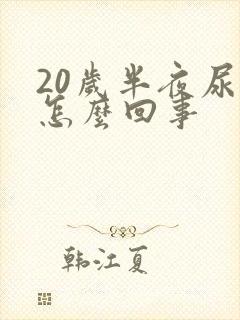 20歲半夜尿
怎麼回事
韩江夏